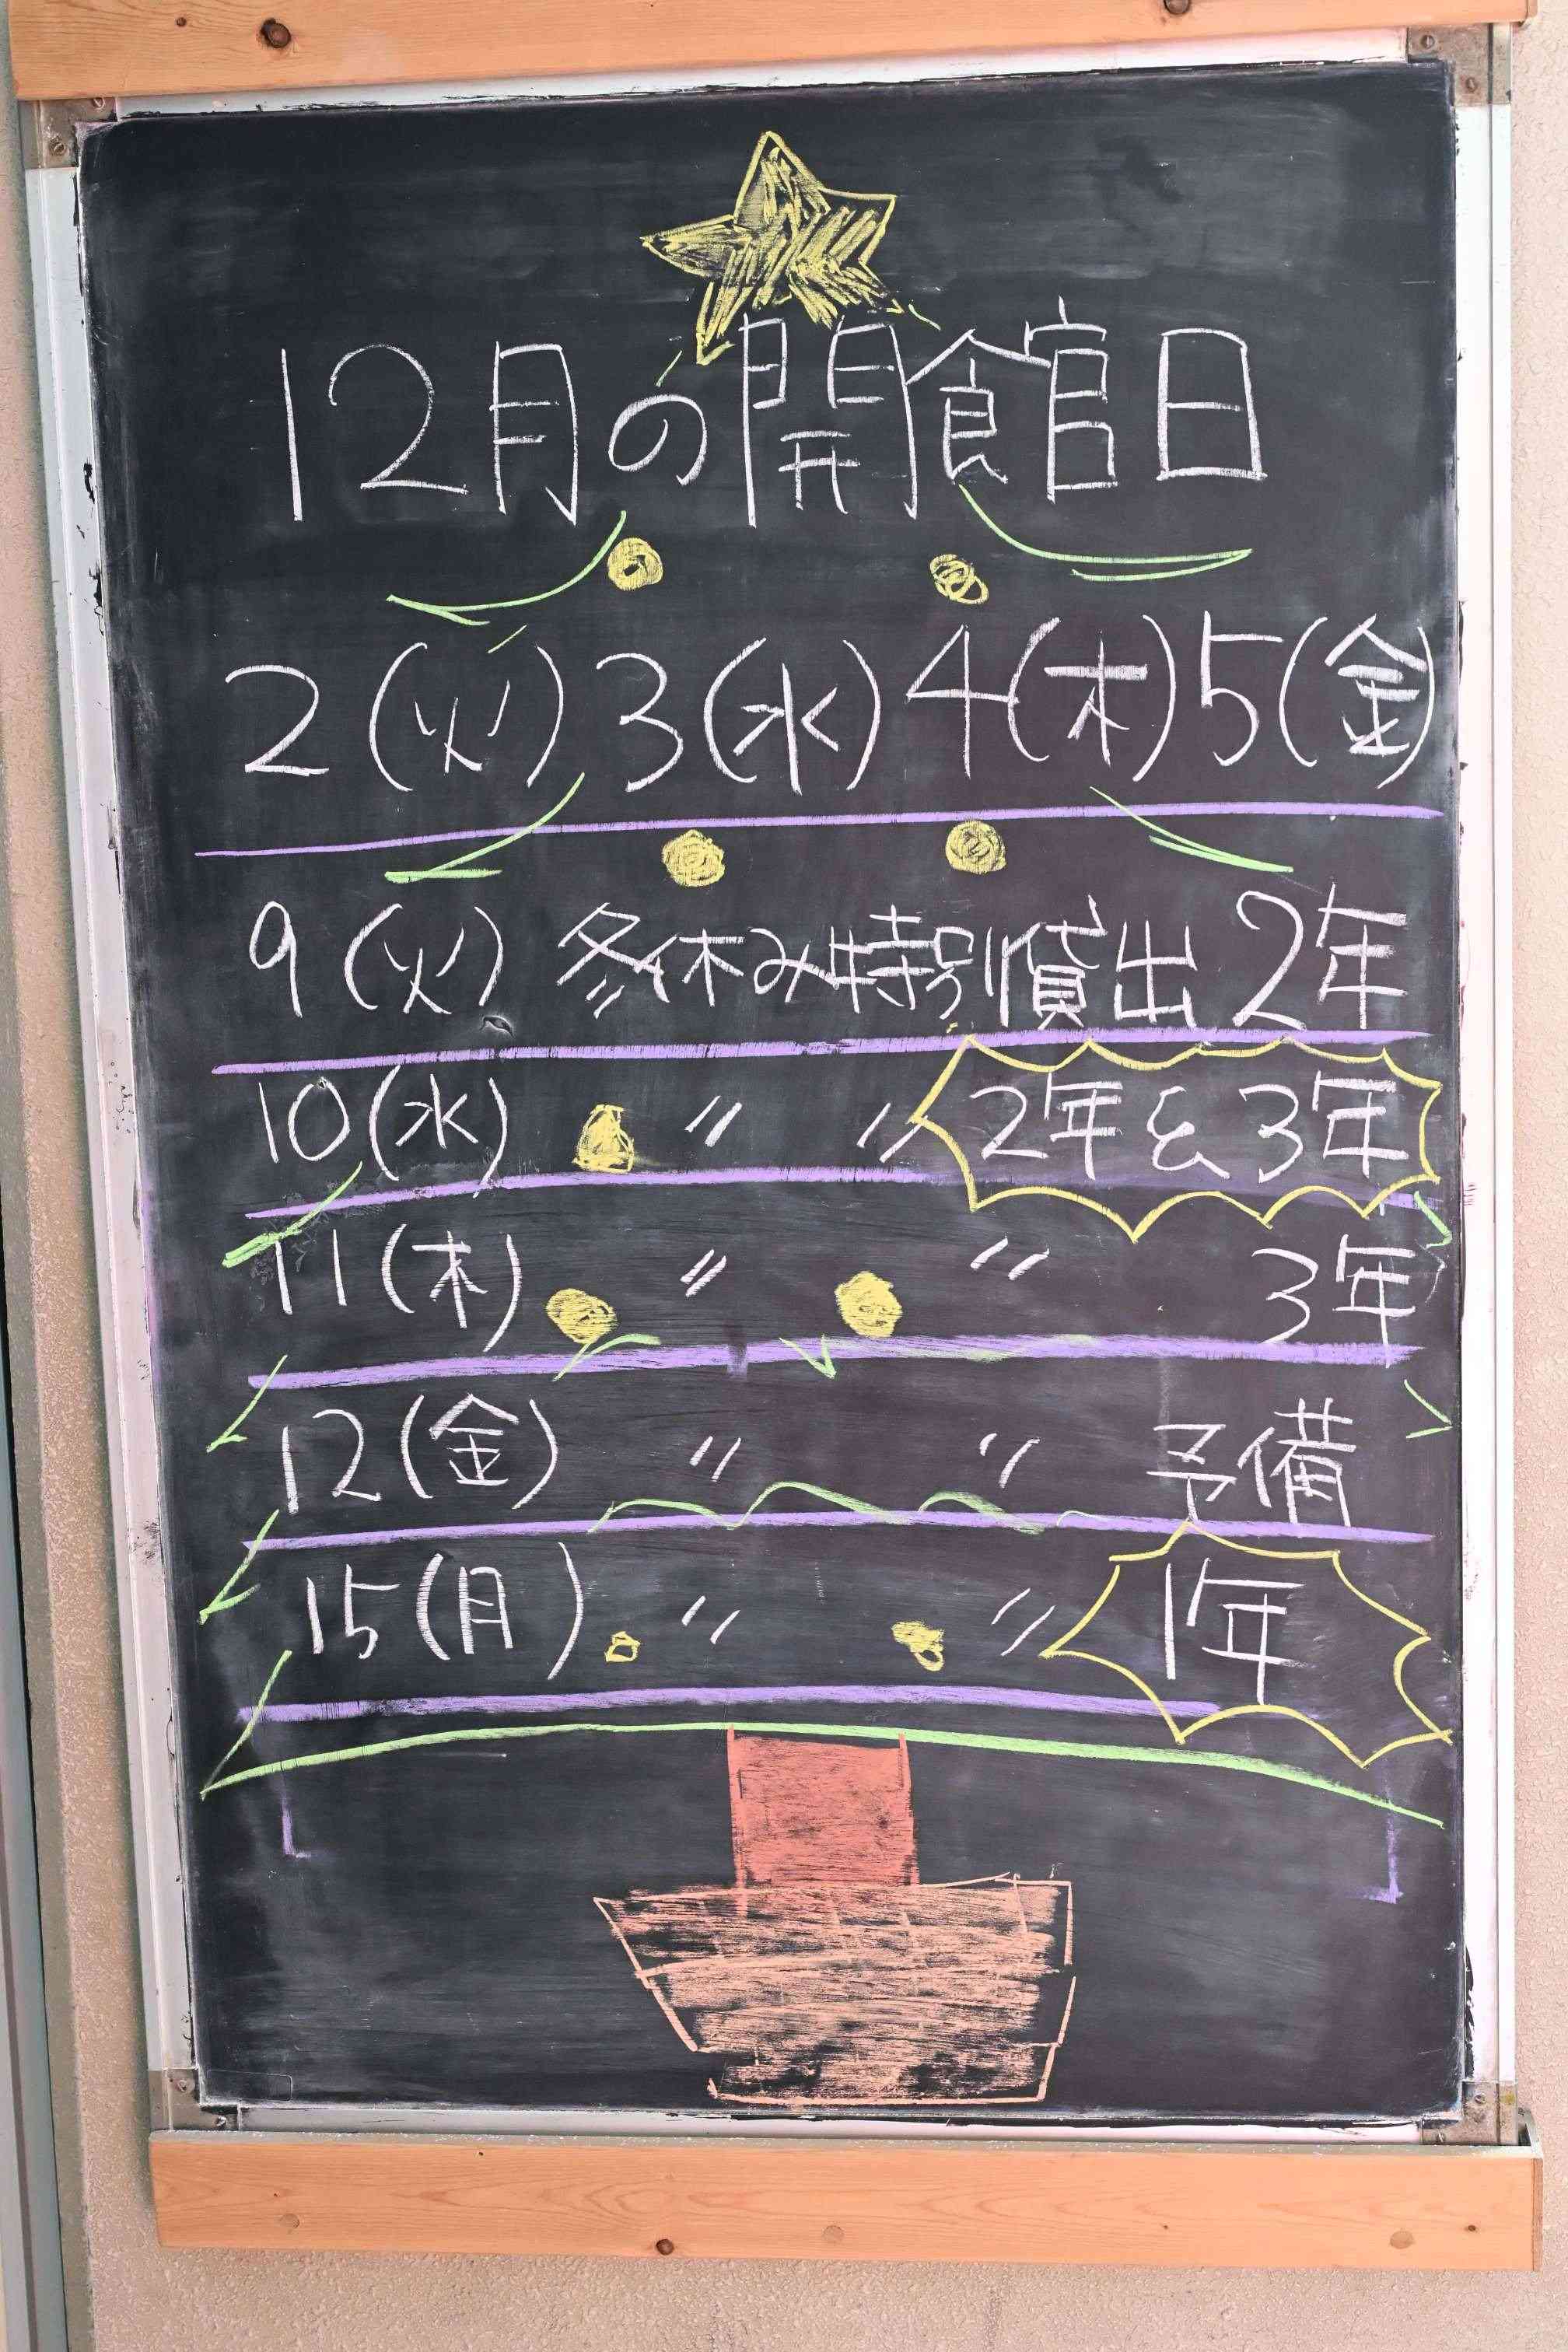 12月の開館日
2(火) 3(水) 4(木) 5(金)
9(火) 冬休み特別貸出 2年
10(水) 〃 〃 2年&3年
11(木) 〃 〃 3年
12(金) 〃 〃 予備
15(月) 〃 〃 1年